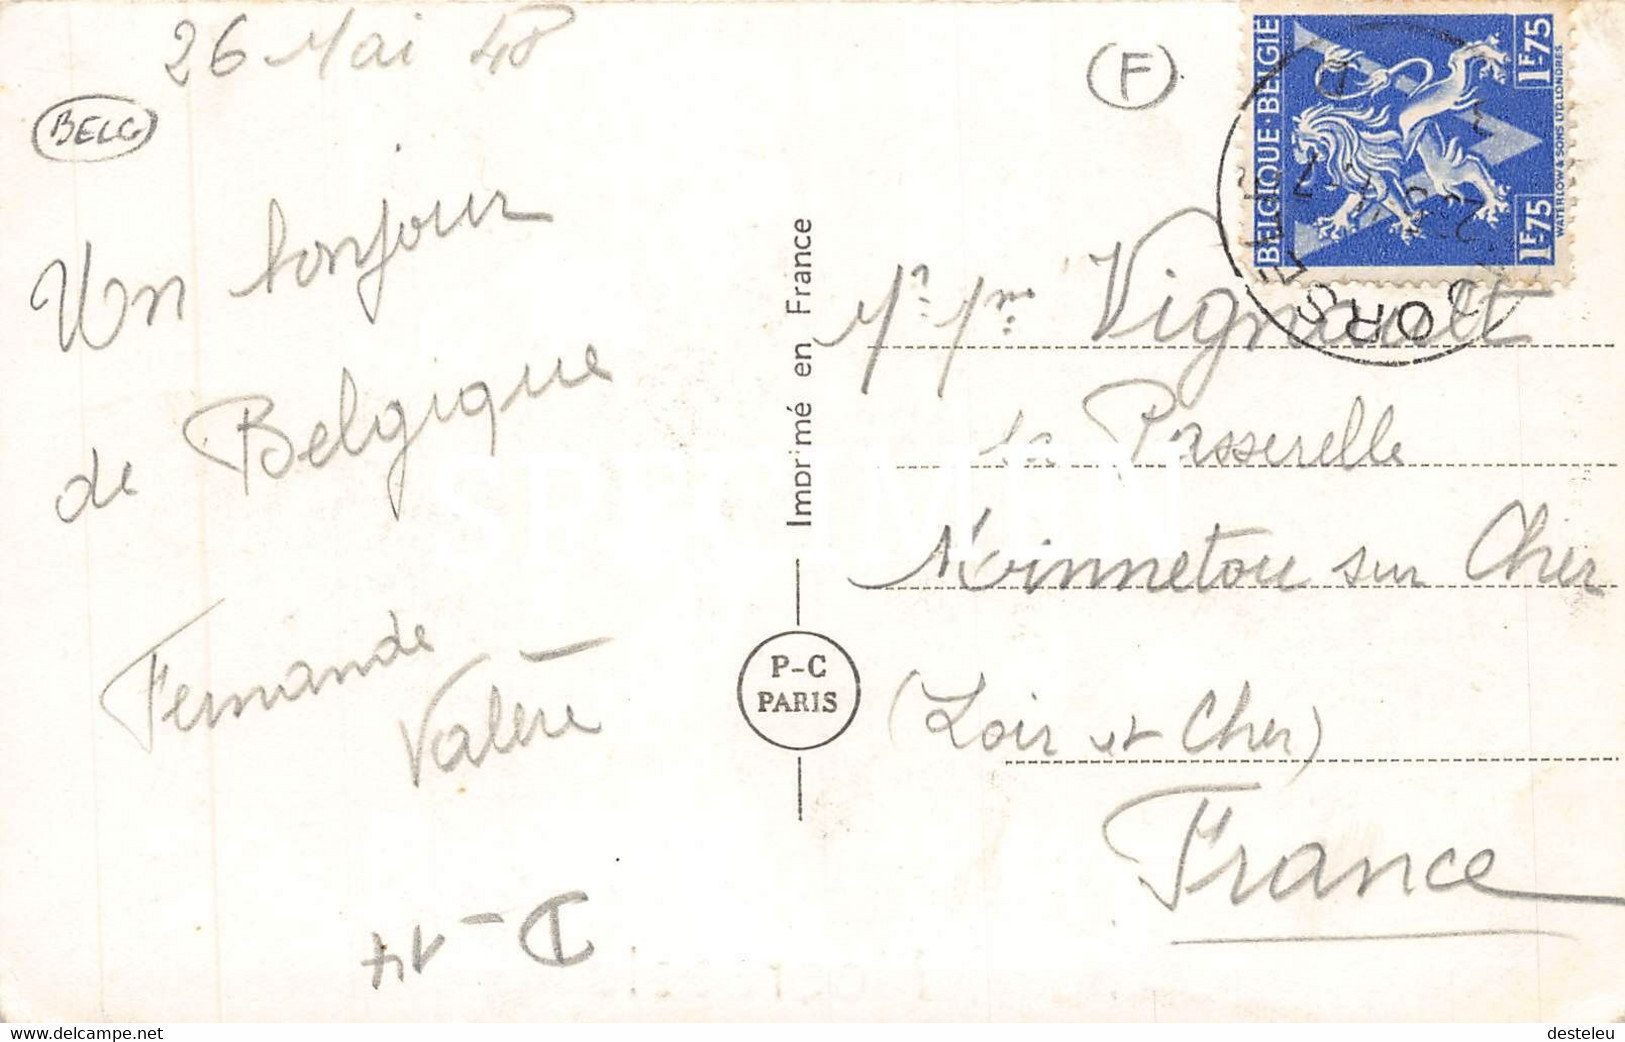 26 Mai 48
BELG
Un bonjour
de Belgique
Fernande
Valère
D-14
Imprimé en France
P-C
PARIS
F
BELGIQUE·BELGIE
1F75
1F75
WATERLOW & SONS LTD. LONDRES
Mr. Mme Vignault
La Passerelle
Noinnetou sur Cher
(Loir et Cher)
France
www.delcampe.net
desteleu